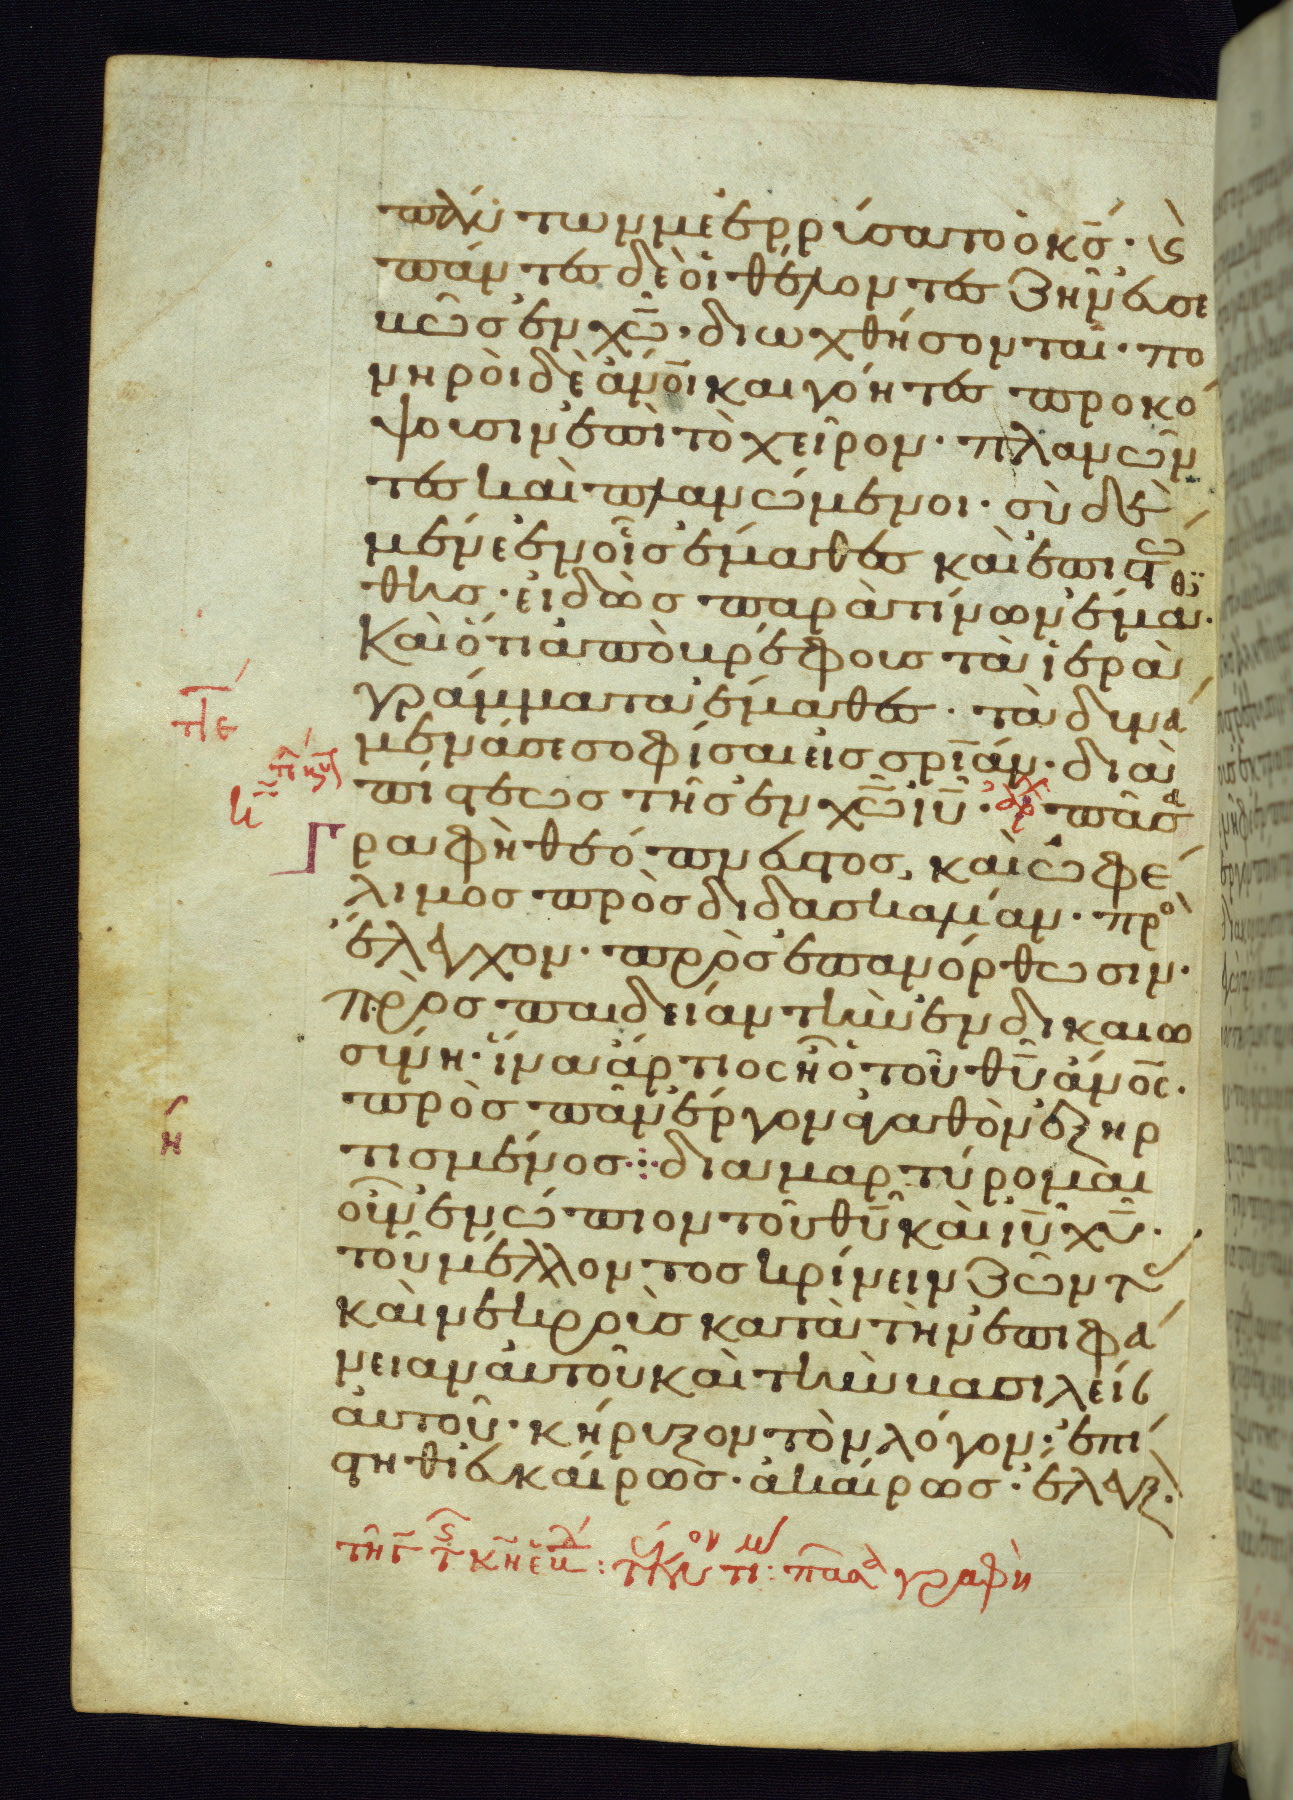 πάντων με ἐρρύσατο ὁ κς̄. καὶ
πάντες δὲ οἱ θέλοντες ζῆν εὐσε
βῶς ἐν χω̄. διωχθήσονται. πο
νηροὶ δὲ ἄνο̄ι καὶ γόητες προκό
ψουσιν ἐπὶ τὸ χεῖρον. πλανῶν
τες καὶ πλανώμενοι. σὺ δὲ
μένε ἐν οἷς ἔμαθες καὶ ἐπιστώ
θης. εἰδὼς παρὰ τίνος ἔμαθ
Καὶ ὅτι ἀπὸ βρέφους τὰ ἱερὰ
γράμματα ἔμαθες. τὰ δυνά
μενά σε σοφίσαι εἰς σρ̄ίαν. διὰ
πίστεως τῆς ἐν χω̄ ιῡ. ἀρχ πᾶσα
Γραφὴ θεόπνευστος, καὶ ὠφέ
λιμος πρὸς διδασκαλίαν. πρὸ
ἔλεγχον. πρὸς ἐπανόρθωσιν.
πρὸς παιδείαν τὴν ἐν δικαιο
σύνη. ἵνα ἄρτιος ἦ ὁ τοῦ θῡ ἄνο̄ς.
πρὸς πᾶν ἔργον ἀγαθὸν ἐξηρ
τισμένος: διαμαρτύρομαι
οὖν ἐνώπιον τοῦ θῡ καὶ ιῡ χῡ.
τοῦ μέλλοντος κρίνειν ζῶντ
καὶ νεκροὺς κατὰ τὴν ἐπιφά
νειαν αὐτοῦ καὶ τὴν βασιλεί
αὐτοῦ. κήρυξον τὸν λόγον. ἐπί
στηθι εὐκαίρως. ἀκαίρως. ἔλεγξ
τῆς κῆς ἑβδ: τέκνον τι: πᾶσα γραφὴ